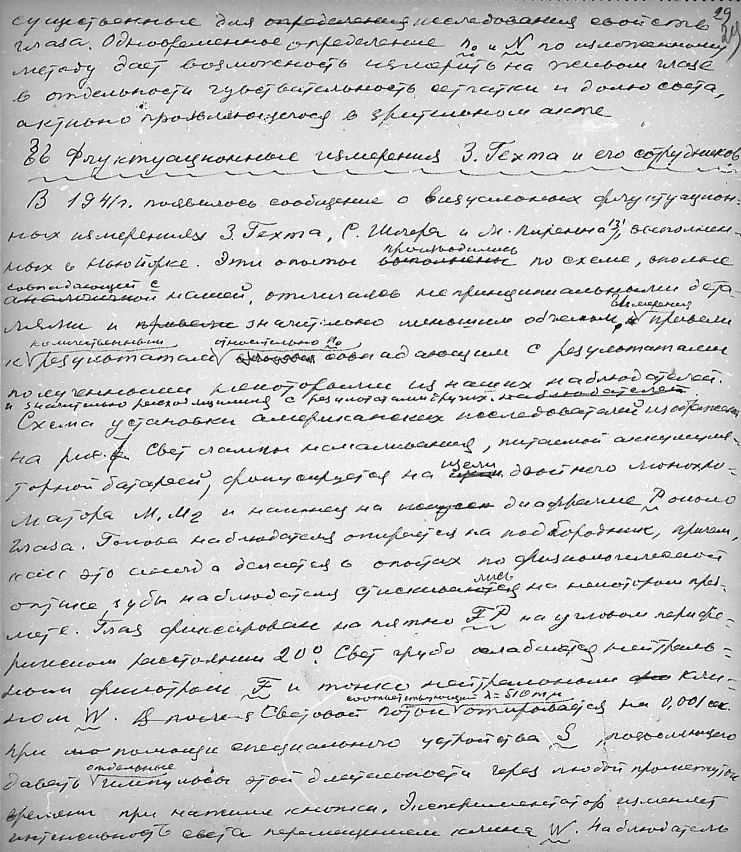 29
существенные для определения исследования свойств
глаза. Одновременное определение n₀ и N по изложенному
методу дает возможность измерить на живом глазе
в отдельности чувствительность сетчатки и долю света,
активно проявляющегося в зрительном акте
Флуктуационные измерения З. Гехта и его сотрудников
В 1941 г. появилось сообщение о визуальных флуктуацион-
ных измерениях З. Гехта, С. Шлера и М. Пиренна, выполнен-
производились
ных в Нью Йорке. Эти опыты выполнены по схеме, вполне
совпадающей с
аналогичной нашей, отличаясь непринципиальными дета-
измерения
лями и привели значительно меньшим объемом, привели
количественным относительно n₀
к результатам совпадающим с результатами
полученными некоторыми из наших наблюдателей.
и значительно расходящимися с результатами других наблюдателей
Схема установки американских исследователей изображена
на рис. 7 Свет лампы накаливания, питаемой аккумуля-
щели
торной батареей, фокусируется на двойного монохро-
матора M₁M₂ и наконец на диафрагме P около
глаза. Голова наблюдателя опирается на подбородник, причем,
как это иногда делается в опытах по физиологической
лись
оптике, зубы наблюдателя стискиваются на некотором пред-
мете. Глаз фиксирован на пятно FP на угловом перифе-
рическом расстоянии 20°. Свет грубо ослабляется нейтраль-
ным фильтром F и тонко нейтральным кли-
соответствующий λ = 510 mμ
ном W. Световой поток отпирается на 0,001 сек.
при помощи специального устройства S, позволяющего
отдельные
давать импульсы этой длительности через любой промежуток
времени при нажиме кнопки. Экспериментатор изменяет
интенсивность света перемещением клина W. Наблюдатель